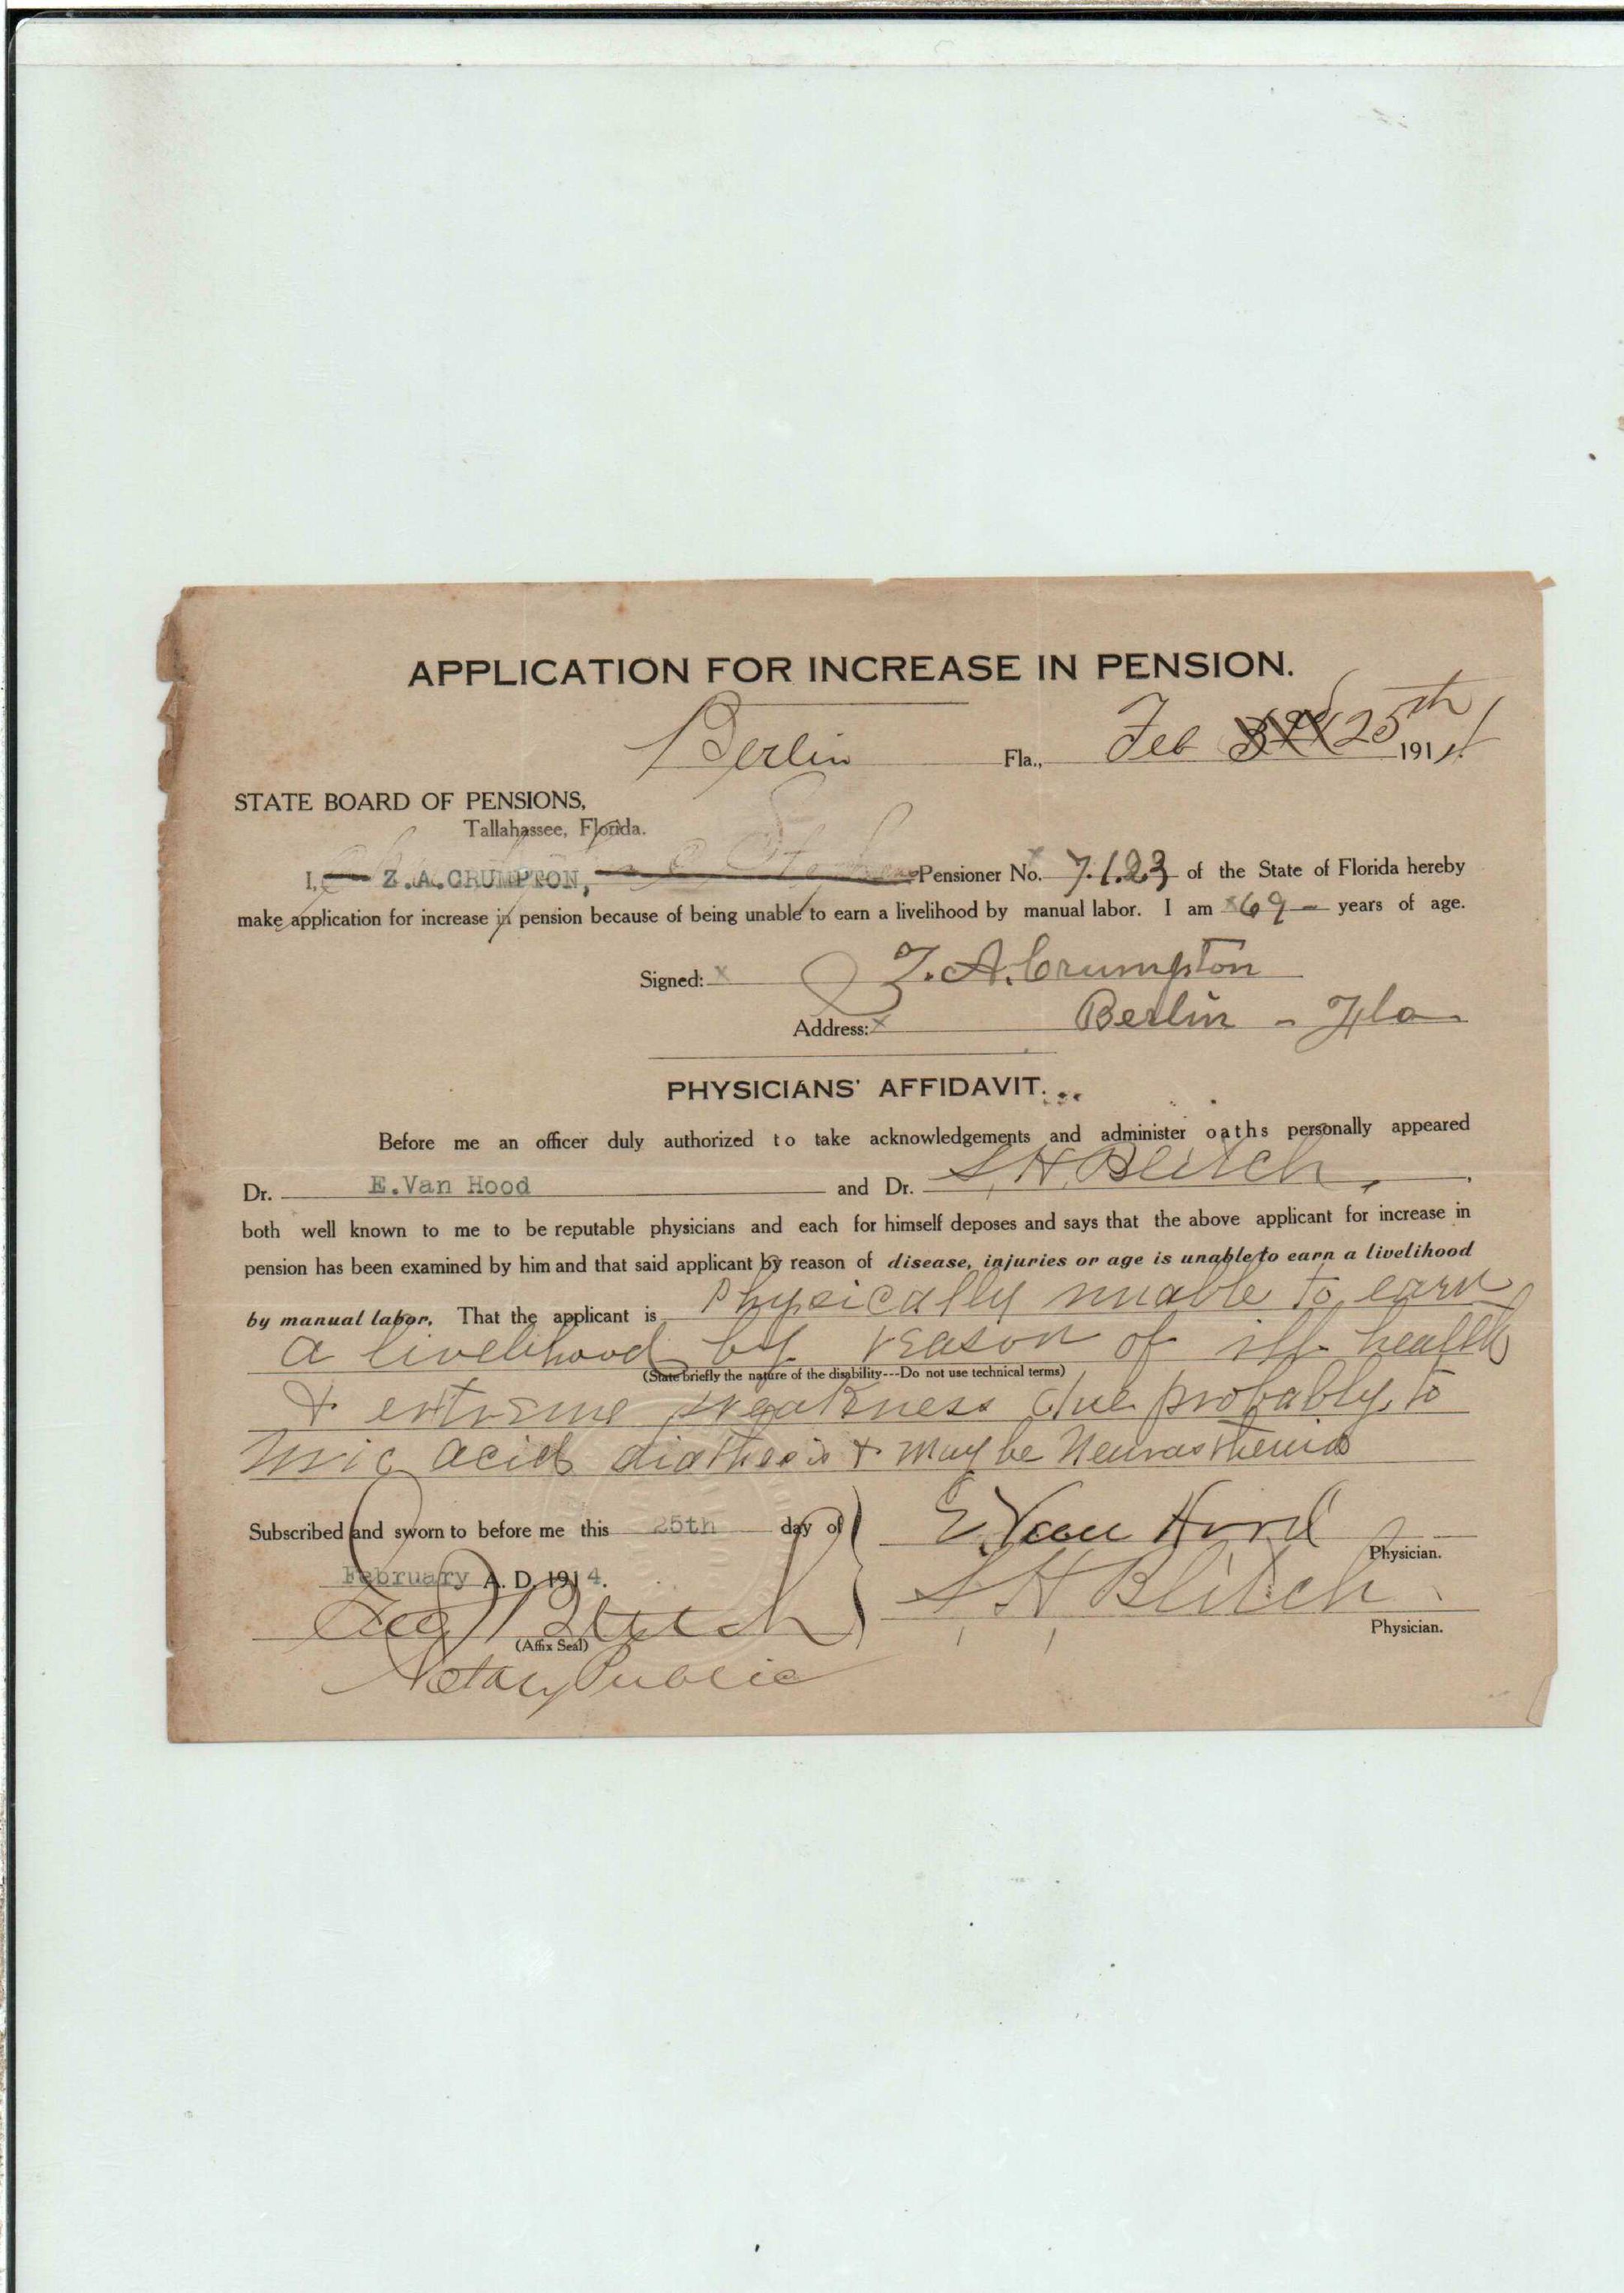 APPLICATION FOR INCREASE IN PENSION.
Berlin Fla., Feb 25th 1914
STATE BOARD OF PENSIONS,
Tallahassee, Florida.
I, Z.A.CRUMPTON, Pensioner No. 7123 of the State of Florida hereby
make application for increase in pension because of being unable to earn a livelihood by manual labor. I am 69 years of age.
Signed: x Z. A. Crumpton
Address: x Berlin - Fla.
PHYSICIANS' AFFIDAVIT.
Before me an officer duly authorized to take acknowledgements and administer oaths personally appeared
Dr. E.Van Hood and Dr. S. H. Blitch,
both well known to me to be reputable physicians and each for himself deposes and says that the above applicant for increase in
pension has been examined by him and that said applicant by reason of disease, injuries or age is unable to earn a livelihood
by manual labor. That the applicant is Physically unable to earn
a livelihood by reason of ill health
(State briefly the nature of the disability---Do not use technical terms)
& extreme weakness due probably to
Uric acid diathesis & may be Neurasthenia
Subscribed and sworn to before me this 25th day of
E. Van Hood
Physician.
February A. D. 1914.
S. H. Blitch
Physician.
Blitch
(Affix Seal)
Notary Public